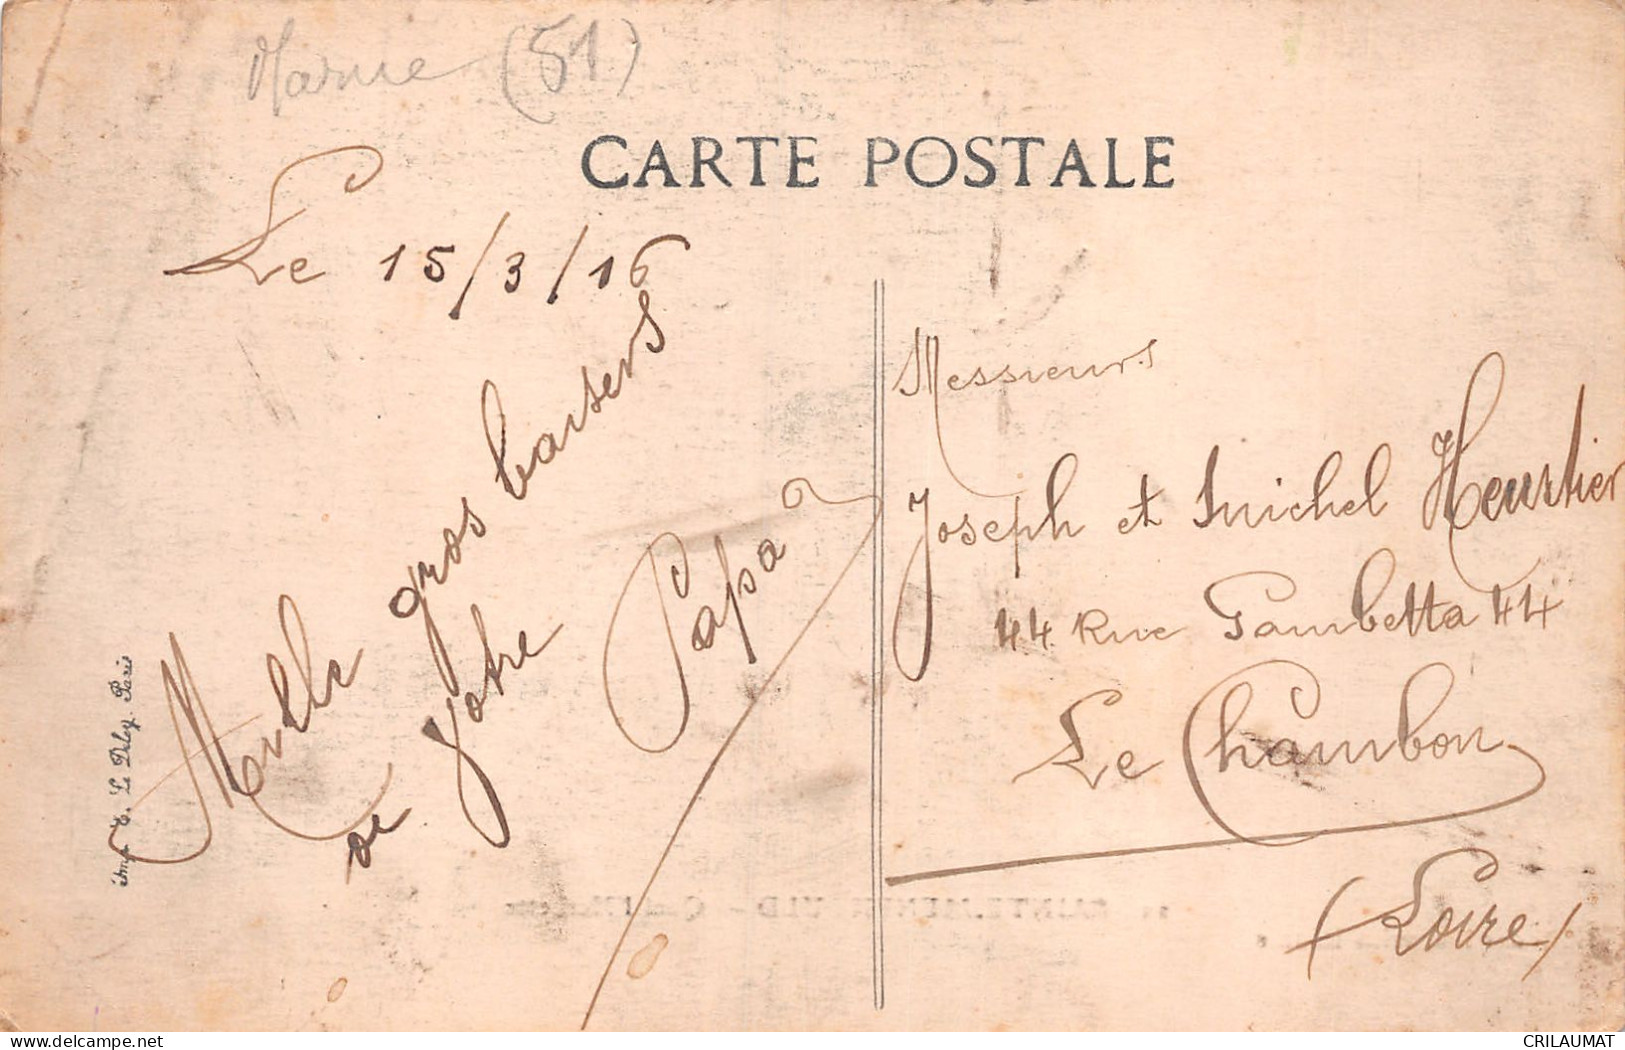 Marne (51)
CARTE POSTALE
Le 15/3/16
Mille gros baisers
de Votre Papa
Messieurs
Joseph et Michel Heurtier
44 Rue Gambetta 44
Le Chambon
(Loire)
Imp. E. Le Deley. Paris
delcampe.net
CRILAUMAT